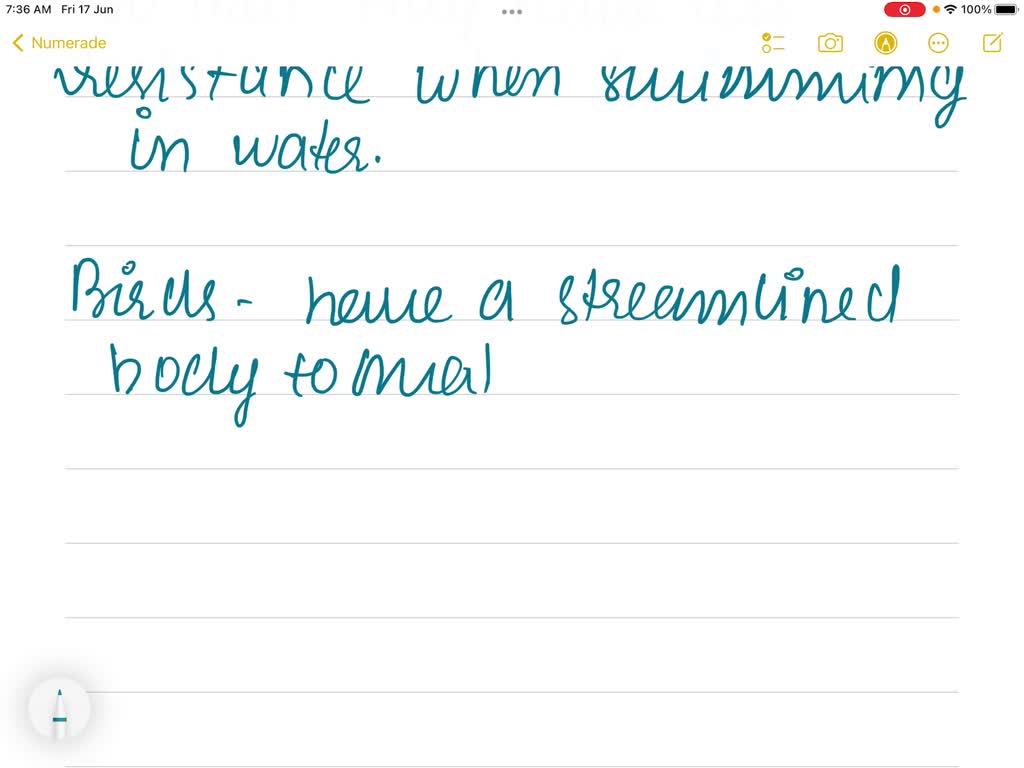 7:36 AM Fri 17 Jun
100%
Numerade
resistance when swimming
in water.
Birds - have a streamlined
body to mal